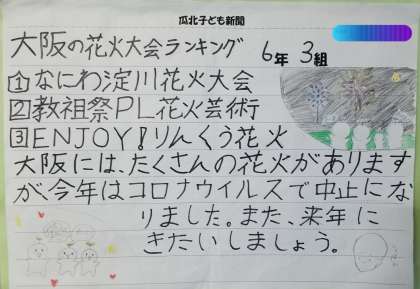 瓜北子ども新聞
大阪の花火大会ランキング 6年 3組
①なにわ淀川花火大会
②教祖祭PL花火芸術
③ENJOY!りんくう花火
大阪には、たくさんの花火があります
が、今年はコロナウイルスで中止にな
りました。また、来年に
きたいしましょう。